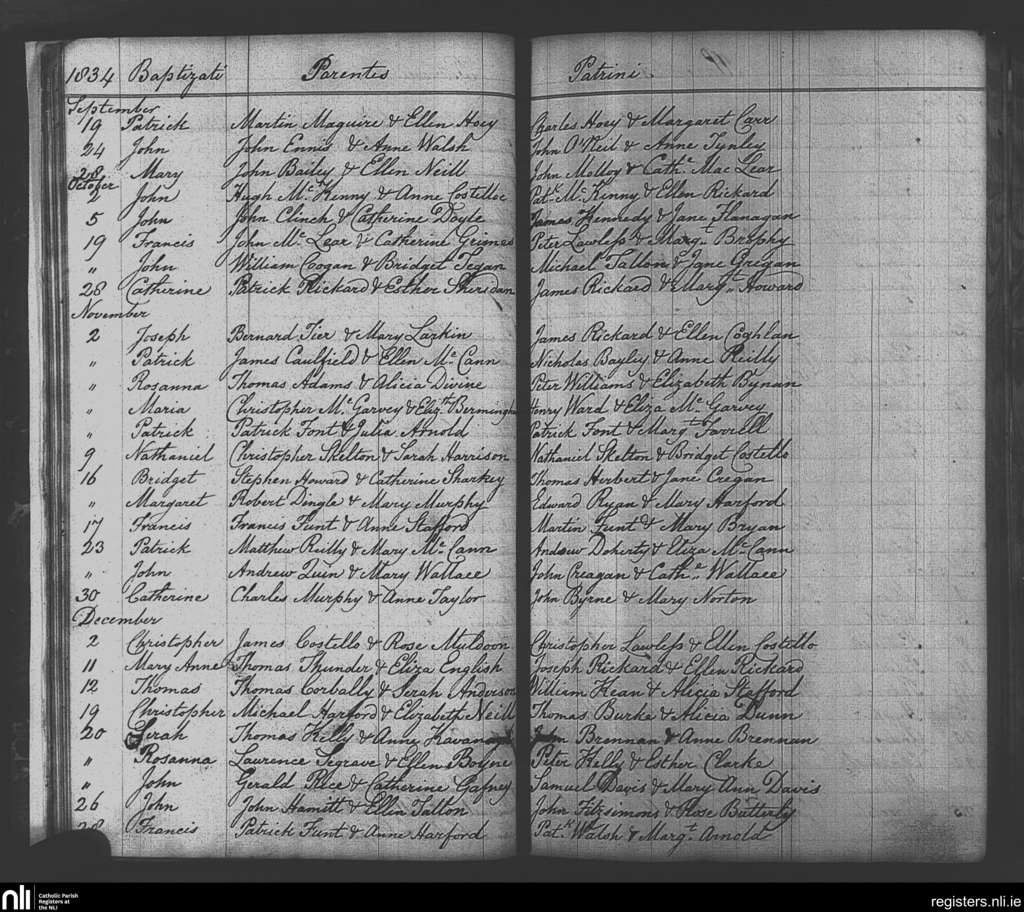 1834 Baptizati Parentes Patrini
September
19 Patrick Martin Maguire & Ellen Hoey Charles Hoey & Margaret Carr
24 John John Ennis & Anne Walsh John O'Neil & Anne Tynley
28 Mary John Bailey & Ellen Neill John Molloy & Cathe Mac Lear
October
2 John Hugh Mc Kenny & Anne Costelloe Patk Mc Kenny & Ellen Rickard
5 John John Clinch & Catherine Doyle James Kennedy & Jane Flanagan
19 Francis John Mc Lear & Catherine Grimes Peter Lawless & Margt Brophy
" John William Coogan & Bridget Tegan Michael Tallon & Jane Gregan
26 Catherine Patrick Rickard & Esther Sheridan James Rickard & Margt Howard
November
2 Joseph Bernard Tier & Mary Larkin James Rickard & Ellen Coghlan
" Patrick James Caulfield & Ellen Mc Cann Nicholas Bayley & Anne Reilly
" Rosanna Thomas Adams & Alicia Divine Peter Williams & Elizabeth Bynan
" Maria Christopher Mc Garvey & Elizth Bermingham Henry Ward & Eliza Mc Garvey
" Patrick Patrick Font & Julia Arnold Patrick Font & Margt Farrell
9 Nathaniel Christopher Skelton & Sarah Harrison Nathaniel Skelton & Bridget Costello
16 Bridget Stephen Howard & Catherine Sharkey Thomas Herbert & Jane Cregan
" Margaret Robert Dingle & Mary Murphy Edward Ryan & Mary Harford
17 Francis Francis Funt & Anne Stafford Martin Funt & Mary Bryan
23 Patrick Matthew Reilly & Mary Mc Cann Andrew Doherty & Eliza Mc Cann
" John Andrew Quin & Mary Wallace John Creagan & Cathe Wallace
30 Catherine Charles Murphy & Anne Taylor John Byrne & Mary Norton
December
2 Christopher James Costello & Rose Muldoon Christopher Lawless & Ellen Costello
11 Mary Anne Thomas Thunder & Eliza English Joseph Rickard & Ellen Rickard
12 Thomas Thomas Corbally & Serah Anderson William Kean & Alicia Stafford
19 Christopher Michael Harford & Elizabeth Neill Thomas Burke & Alicia Dunn
20 Serah Thomas Kelly & Anne Brennan & Anne Brennan
" Rosanna Laurence Segrave & Ellen Boyne Peter Kelly & Esther Clarke
" John Gerald Rice & Catherine Gafney Samuel Davis & Mary Ann Davis
26 John John Hamitt & Ellen Tallon John Fitzsimons & Rose Butterly
28 Francis Patrick Funt & Anne Harford Patk Walsh & Margt Arnold
nli Catholic Parish
Registers at
the NLI
registers.nli.ie